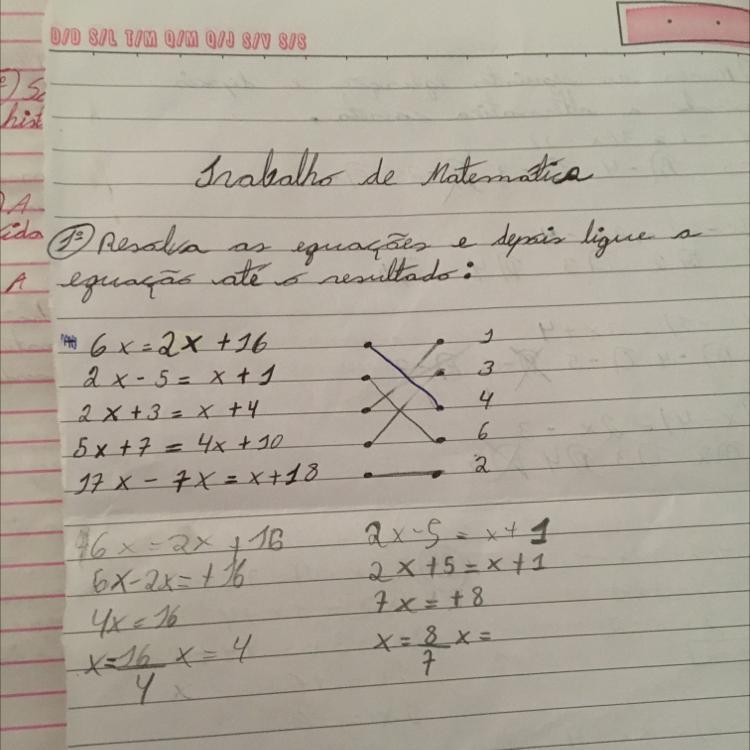 D/D S/L T/M Q/M Q/J S/V S/S
Trabalho de Matemática
1º Resolva as equações e depois ligue a
equação até o resultado:
6x = 2x + 16 1
2x - 5 = x + 1 3
2x + 3 = x + 4 4
5x + 7 = 4x + 10 6
17x - 7x = x + 18 2
6x = 2x + 16
6x - 2x = + 16
4x = 16
x = 16/4 x = 4
2x - 5 = x + 1
2x + 5 = x + 1
7x = + 8
x = 8/7 x =